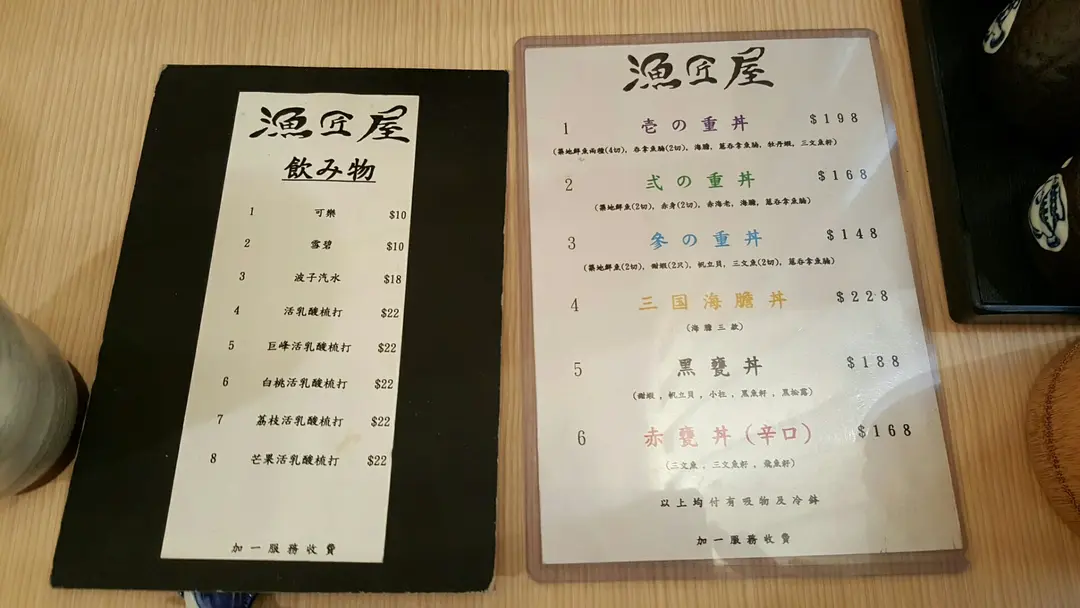 漁匠屋
飲み物
1 可樂 $10
2 雪碧 $10
3 波子汽水 $18
4 活乳酸梳打 $22
5 巨峰活乳酸梳打 $22
6 白桃活乳酸梳打 $22
7 荔枝活乳酸梳打 $22
8 芒果活乳酸梳打 $22
加一服務收費
漁匠屋
1 壱の重丼 $198
(築地鮮魚兩種(4切), 吞拿魚腩(2切), 海膽, 蔥吞拿魚腩, 牡丹蝦, 三文魚籽)
2 弍の重丼 $168
(築地鮮魚(2切), 赤身(2切), 赤海老, 海膽, 蔥吞拿魚腩)
3 參の重丼 $148
(築地鮮魚(2切), 甜蝦(2只), 帆立貝, 三文魚(2切), 蔥吞拿魚腩)
4 三国海膽丼 $228
(海膽三款)
5 黒甕丼 $188
(甜蝦, 帆立貝, 小柱, 黑魚籽, 黑松露)
6 赤甕丼(辛口) $168
(三文魚, 三文魚籽, 飛魚籽)
以上均付有吸物及冷鉢
加一服務收費